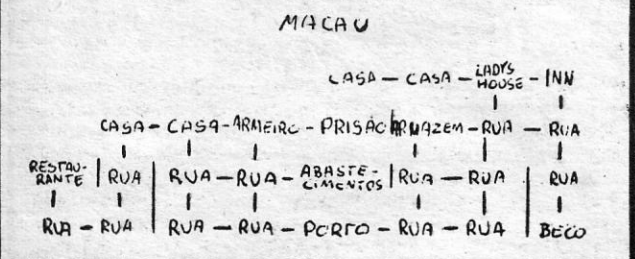 MACAU
CASA - CASA - LADYS HOUSE - INN
CASA - CASA - ARMEIRO - PRISÃO ARMAZEM - RUA - RUA
RESTAU-RANTE | RUA | RUA - RUA - ABASTE-CIMENTOS | RUA - RUA | RUA
RUA - RUA | RUA - RUA - PORTO - RUA - RUA | BECO